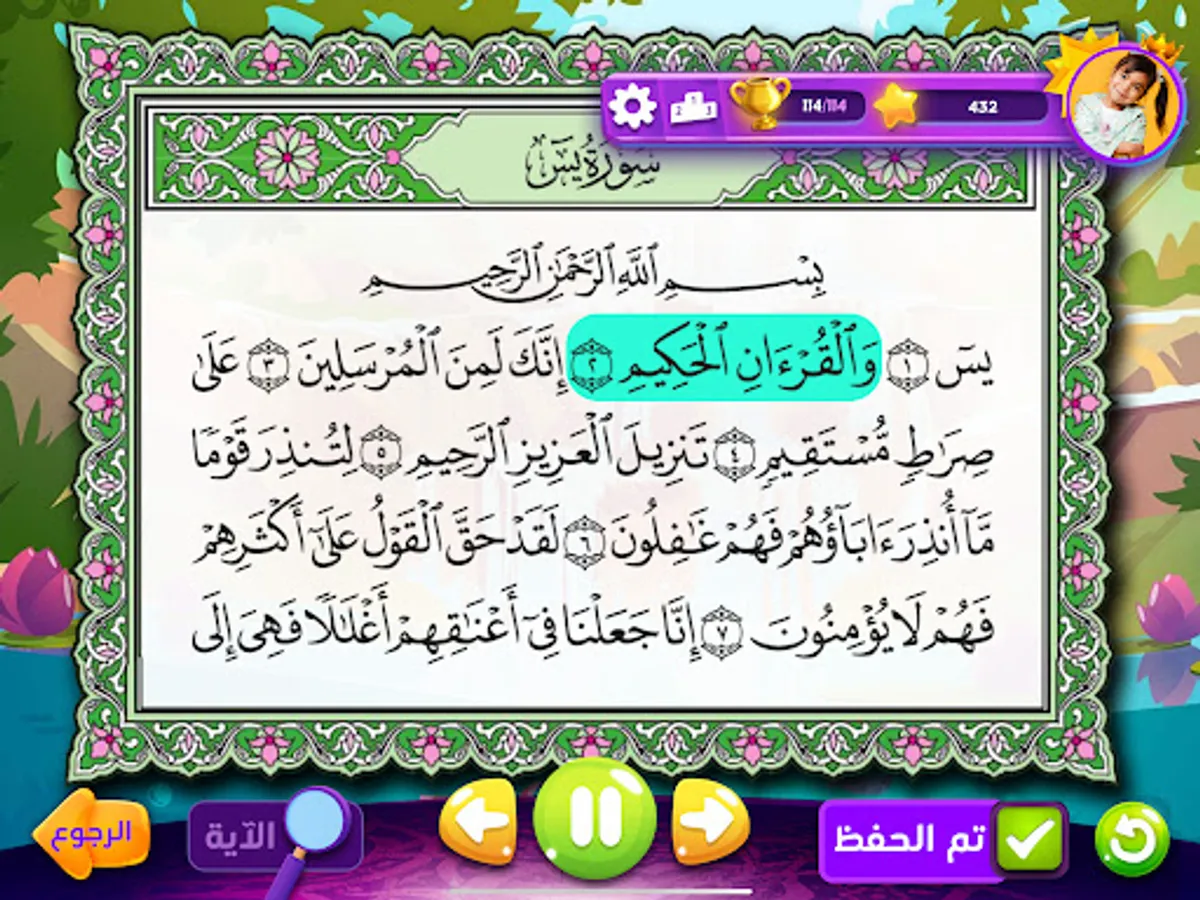 114/114
432
سُورَةُ يسٓ
بِسْمِ ٱللَّهِ ٱلرَّحْمَٰنِ ٱلرَّحِيمِ
يسٓ ١ وَٱلْقُرْءَانِ ٱلْحَكِيمِ ٢ إِنَّكَ لَمِنَ ٱلْمُرْسَلِينَ ٣ عَلَىٰ
صِرَٰطٍ مُّسْتَقِيمٍ ٤ تَنزِيلَ ٱلْعَزِيزِ ٱلرَّحِيمِ ٥ لِتُنذِرَ قَوْمًا
مَّآ أُنذِرَ ءَابَآؤُهُمْ فَهُمْ غَٰفِلُونَ ٦ لَقَدْ حَقَّ ٱلْقَوْلُ عَلَىٰٓ أَكْثَرِهِمْ
فَهُمْ لَا يُؤْمِنُونَ ٧ إِنَّا جَعَلْنَا فِىٓ أَعْنَٰقِهِمْ أَغْلَٰلًا فَهِىَ إِلَى
تم الحفظ
الآية
الرجوع